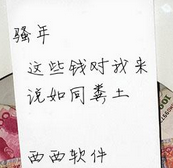 骚年
这些钱对我来
说如同粪土
西西软件